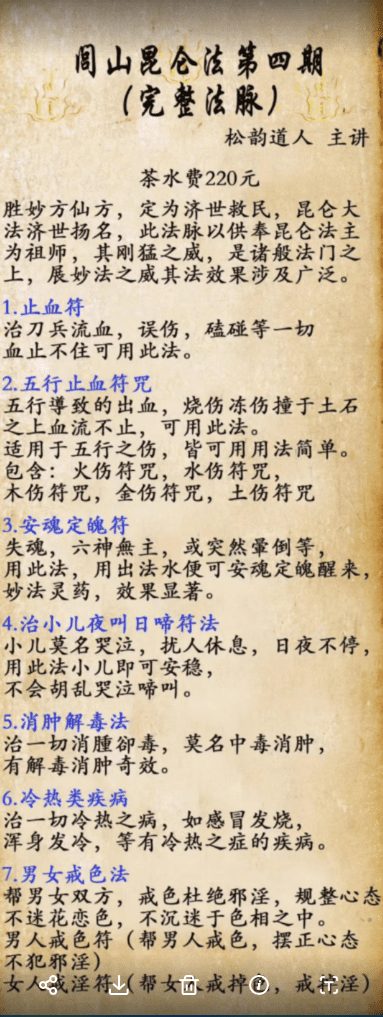 闾山昆仑法第四期
（完整法脉）
松韵道人 主讲
茶水费220元
胜妙方仙方，定为济世救民，昆仑大
法济世扬名，此法脉以供奉昆仑法主
为祖师，其刚猛之威，是诸般法门之
上，展妙法之威其法效果涉及广泛。
1.止血符
治刀兵流血，误伤，磕碰等一切
血止不住可用此法。
2.五行止血符咒
五行導致的出血，烧伤冻伤撞于土石
之上血流不止，可用此法。
适用于五行之伤，皆可用用法简单。
包含：火伤符咒，水伤符咒，
木伤符咒，金伤符咒，土伤符咒
3.安魂定魄符
失魂，六神無主，或突然暈倒等，
用此法，用出法水便可安魂定魄醒来，
妙法灵药，效果显著。
4.治小儿夜叫日啼符法
小儿莫名哭泣，扰人休息，日夜不停，
用此法小儿即可安稳，
不会胡乱哭泣啼叫。
5.消肿解毒法
治一切消腫卻毒，莫名中毒消肿，
有解毒消肿奇效。
6.冷热类疾病
治一切冷热之病，如感冒发烧，
浑身发冷，等有冷热之症的疾病。
7.男女戒色法
帮男女双方，戒色杜绝邪淫，规整心态
不迷花恋色，不沉迷于色相之中。
男人戒色符（帮男人戒色，摆正心态
不犯邪淫）
女人戒淫符（帮女人戒掉，戒掉淫）